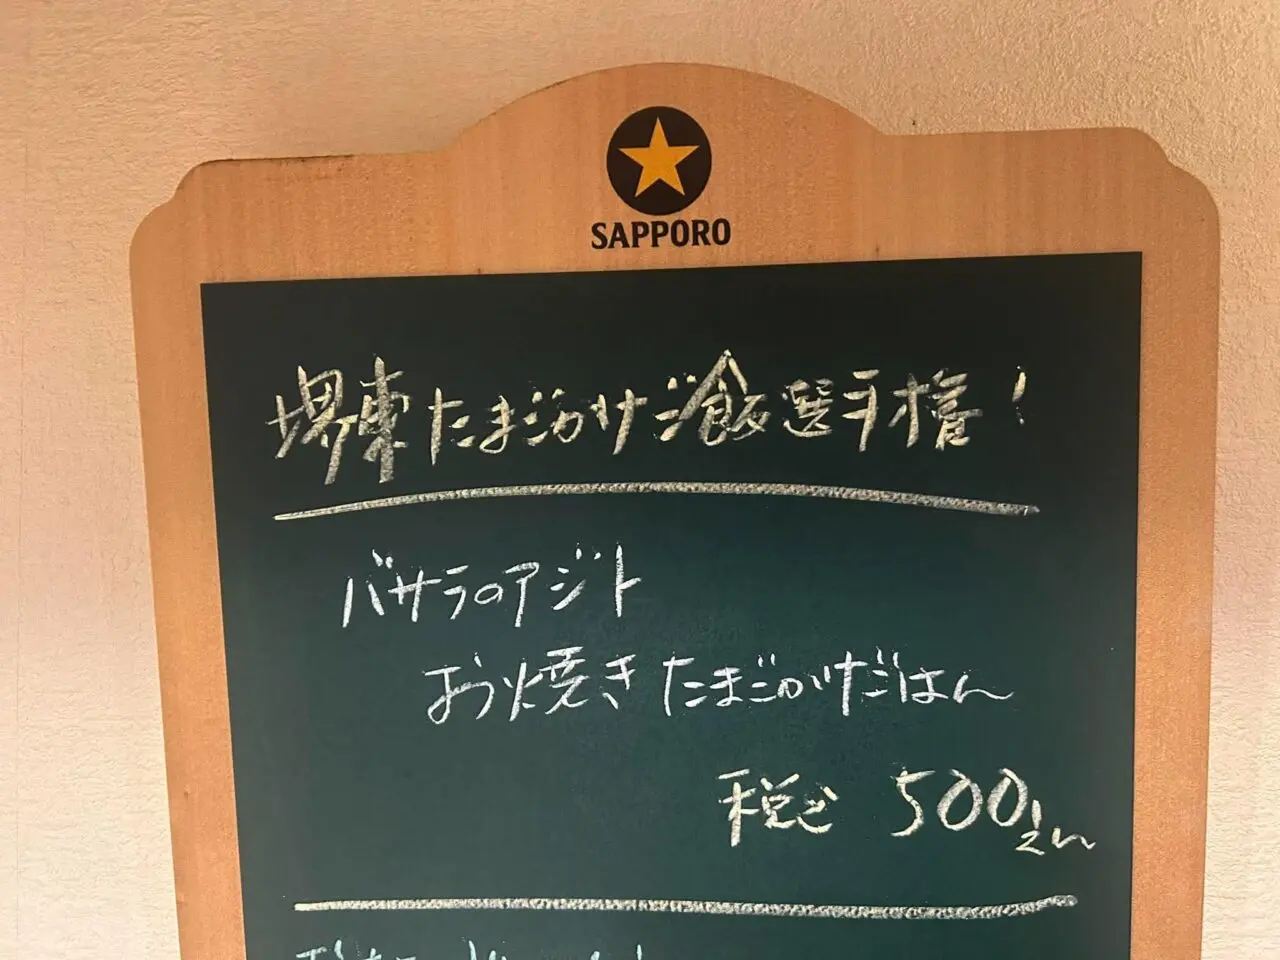 SAPPORO
堺東たまごかけご飯選手権!
バサラのアジト
お焼きたまごかけごはん
税込 500えん